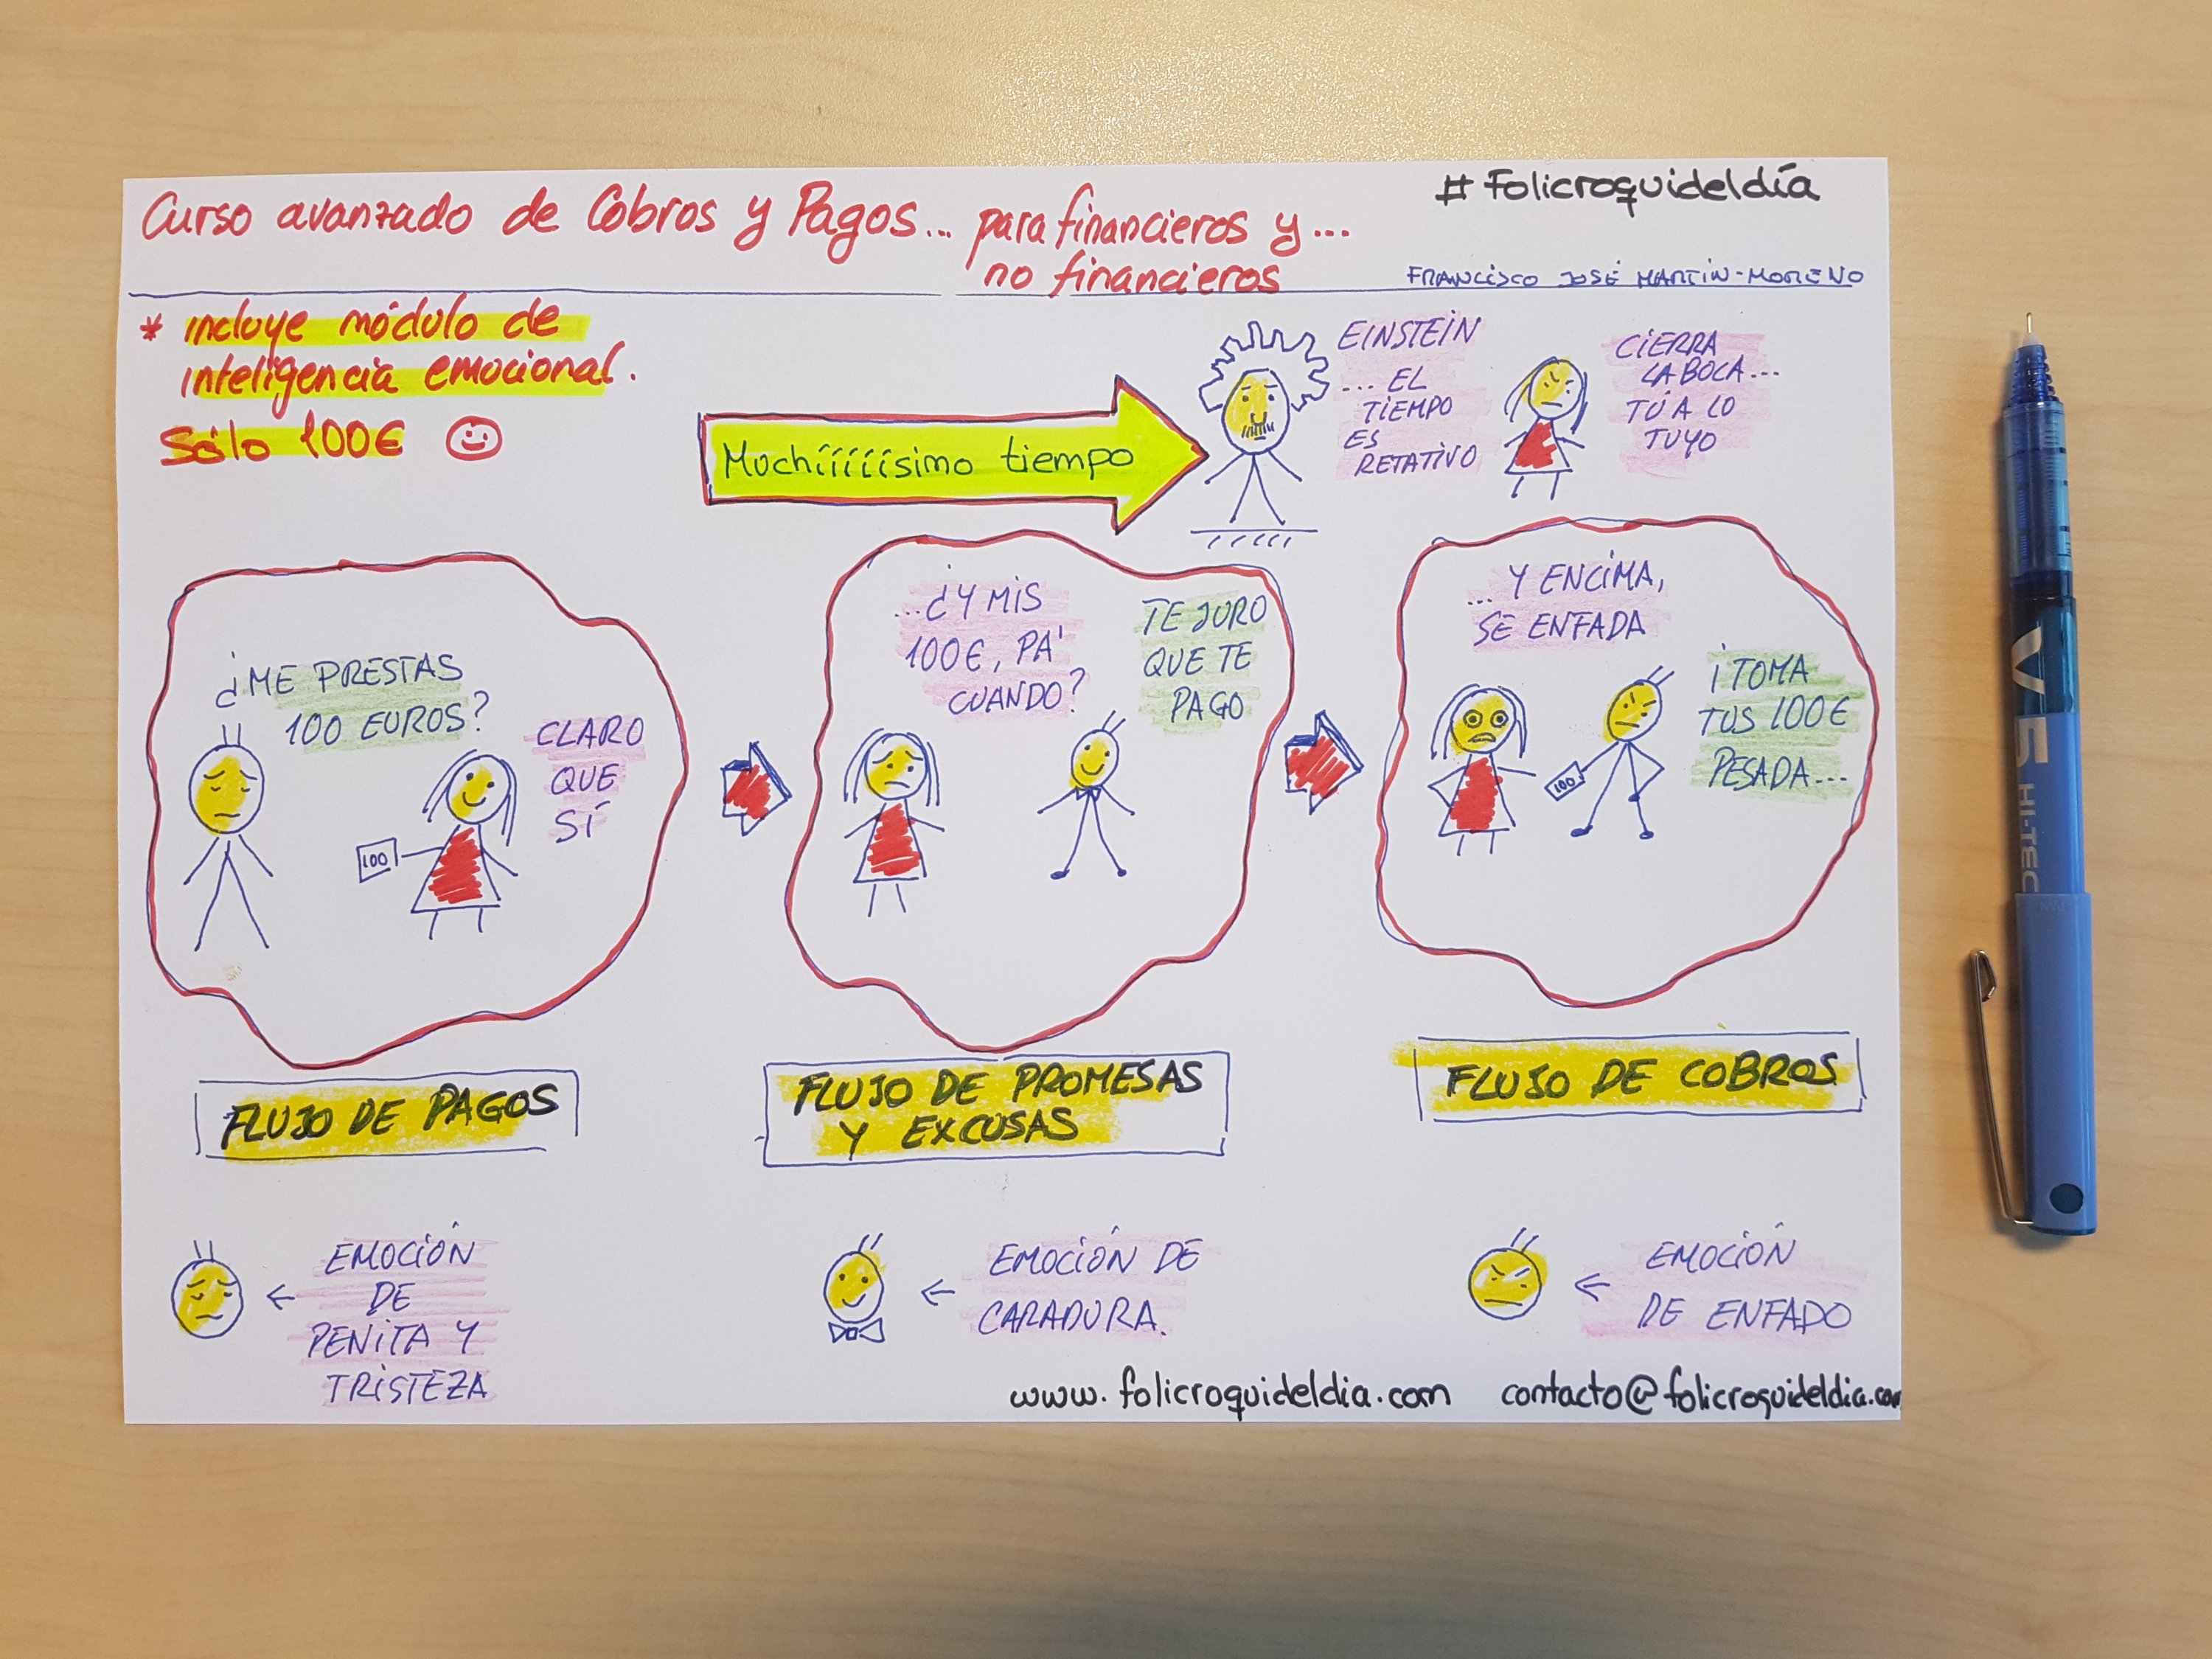 Curso avanzado de Cobros y Pagos... para financieros y...
no financieros
# Folicroquideldía
FRANCISCO JOSÉ MARTÍN-MORENO
* incluye módulo de
inteligencia emocional.
Sólo 100€
Muchíííííísimo tiempo
EINSTEIN
... EL
TIEMPO
ES
RETATIVO
CIERRA
LA BOCA...
TÚ A LO
TUYO
¿ME PRESTAS
100 EUROS?
CLARO
QUE
SÍ
100
...¿Y MIS
100€, PA'
CUANDO?
TE JURO
QUE TE
PAGO
...Y ENCIMA,
SE ENFADA
¡TOMA
TUS 100€
PESADA...
100
FLUJO DE PAGOS
FLUJO DE PROMESAS
Y EXCUSAS
FLUJO DE COBROS
EMOCIÓN
DE
PENITA Y
TRISTEZA
EMOCIÓN DE
CARADURA.
EMOCIÓN
DE ENFADO
www.folicroquideldia.com contacto@folicroquideldia.com
V5 HI-TEC